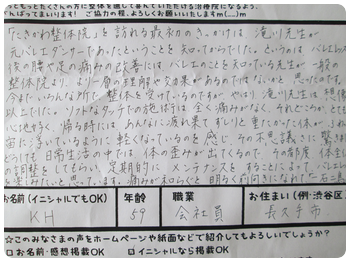 もっとたくさんの方に整体を通して喜んでいただける治療院になるよう、
がんばってまいります! ご協力の程、よろしくお願いいたしますm(...)m
「たきがわ整体院」を訪れる最初のきっかけは、滝川先生が
元バレエダンサーであったということを知ってからでした。というのは、バレエレッスン
後の腰や足の痛みの改善にはバレエのことをよく知る先生が一般の
整体院よりもより一層の理解や効果があるのではないかと思ったのです。
今までいろんな所で整体を受けてきたのですが、やはり滝川先生は想像
以上でした。ソフトなタッチでの施術は全く痛みがなく、それどころか、とても
心地よく、帰る時には、あんなに疲れ果てずしりと重たかった体がふわふわ
宙に浮いているように軽くなっているのを感じ、その不思議さに驚きます。
どうしても日常生活の中では体の歪みが出てくるので、その都度、体全体
の調整をしてもらい、定期的に、メンテナンスをすることによってバレエを
楽しみたいと思っています。痛みが和らぐと明るく前向きになれた
お名前(イニシャルでもOK) 年齢 職業 お住まい(例:渋谷区)
KH 59 会社員 長久手市
☆このみなさまの声をホームページや紙面などで紹介してもよろしいでしょうか?
□お名前・感想掲載OK □イニシャルなら掲載OK